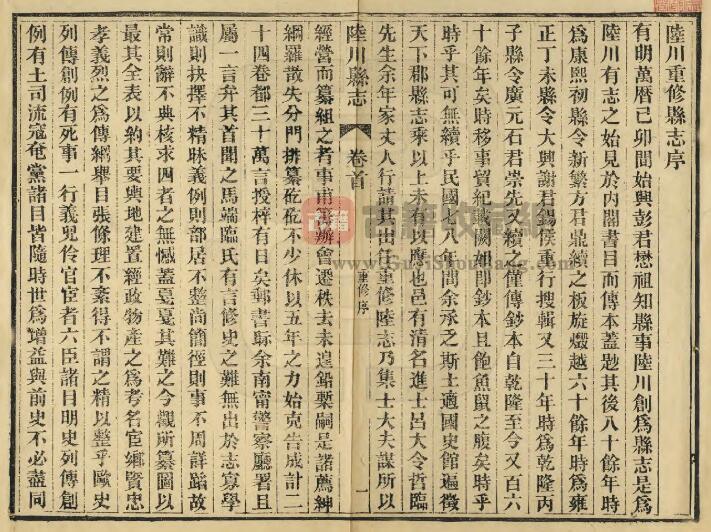 陸川重修縣志序
有明萬曆己卯間始興彭君懋祖知縣事陸川創爲縣志是爲
陸川有志之始見於內閣書目而傳本蓋尟其後八十餘年時
爲康熙初縣令新繁方君鼎續之板旋燬越六十餘年時爲雍
正丁未縣令大興謝君錫侯重行搜輯又三十年時爲乾隆丙
子縣令廣元石君崇先又續之僅傳鈔本自乾隆至今又百六
十餘年矣時移事貿紀載闕如卽鈔本且飽魚鼠之腹矣時乎
時乎其可無續乎民國七八年間余承乏斯土適國史館遍徵
天下郡縣志乘以上未有以應也邑有清名進士呂大令哲臨
先生余年家丈人行請其出任重修陸志乃集士大夫謀所以
陸川縣志
卷首
重修序
一
經營而纂組之者事甫籌辦會遷秩去未遑鉛槧嗣是諸薦紳
網羅散失分門排纂矻矻不少休以五年之力始克告成計二
十四卷都三十萬言授梓有日矣郵書眎余南甯警察廳署且
屬一言弁其首聞之馬端臨氏有言修史之難無出於志寡學
識則抉擇不精昧義例則部居不整尚簡徑則事不周詳蹈故
常則辭不典核求四者之無憾蓋戞戞其難之今觀所纂圖以
最其全表以約其要輿地建置經政物產之爲考名宦鄉賢忠
孝義烈之爲傳綱舉目張條理不紊得不謂之精以整乎歐史
列傳創例有死事一行義兒伶官宦者六臣諸目明史列傳創
例有土司流寇奄黨諸目皆隨時世爲增益與前史不必盡同
古籍收藏網
www.GujiShoucang.com